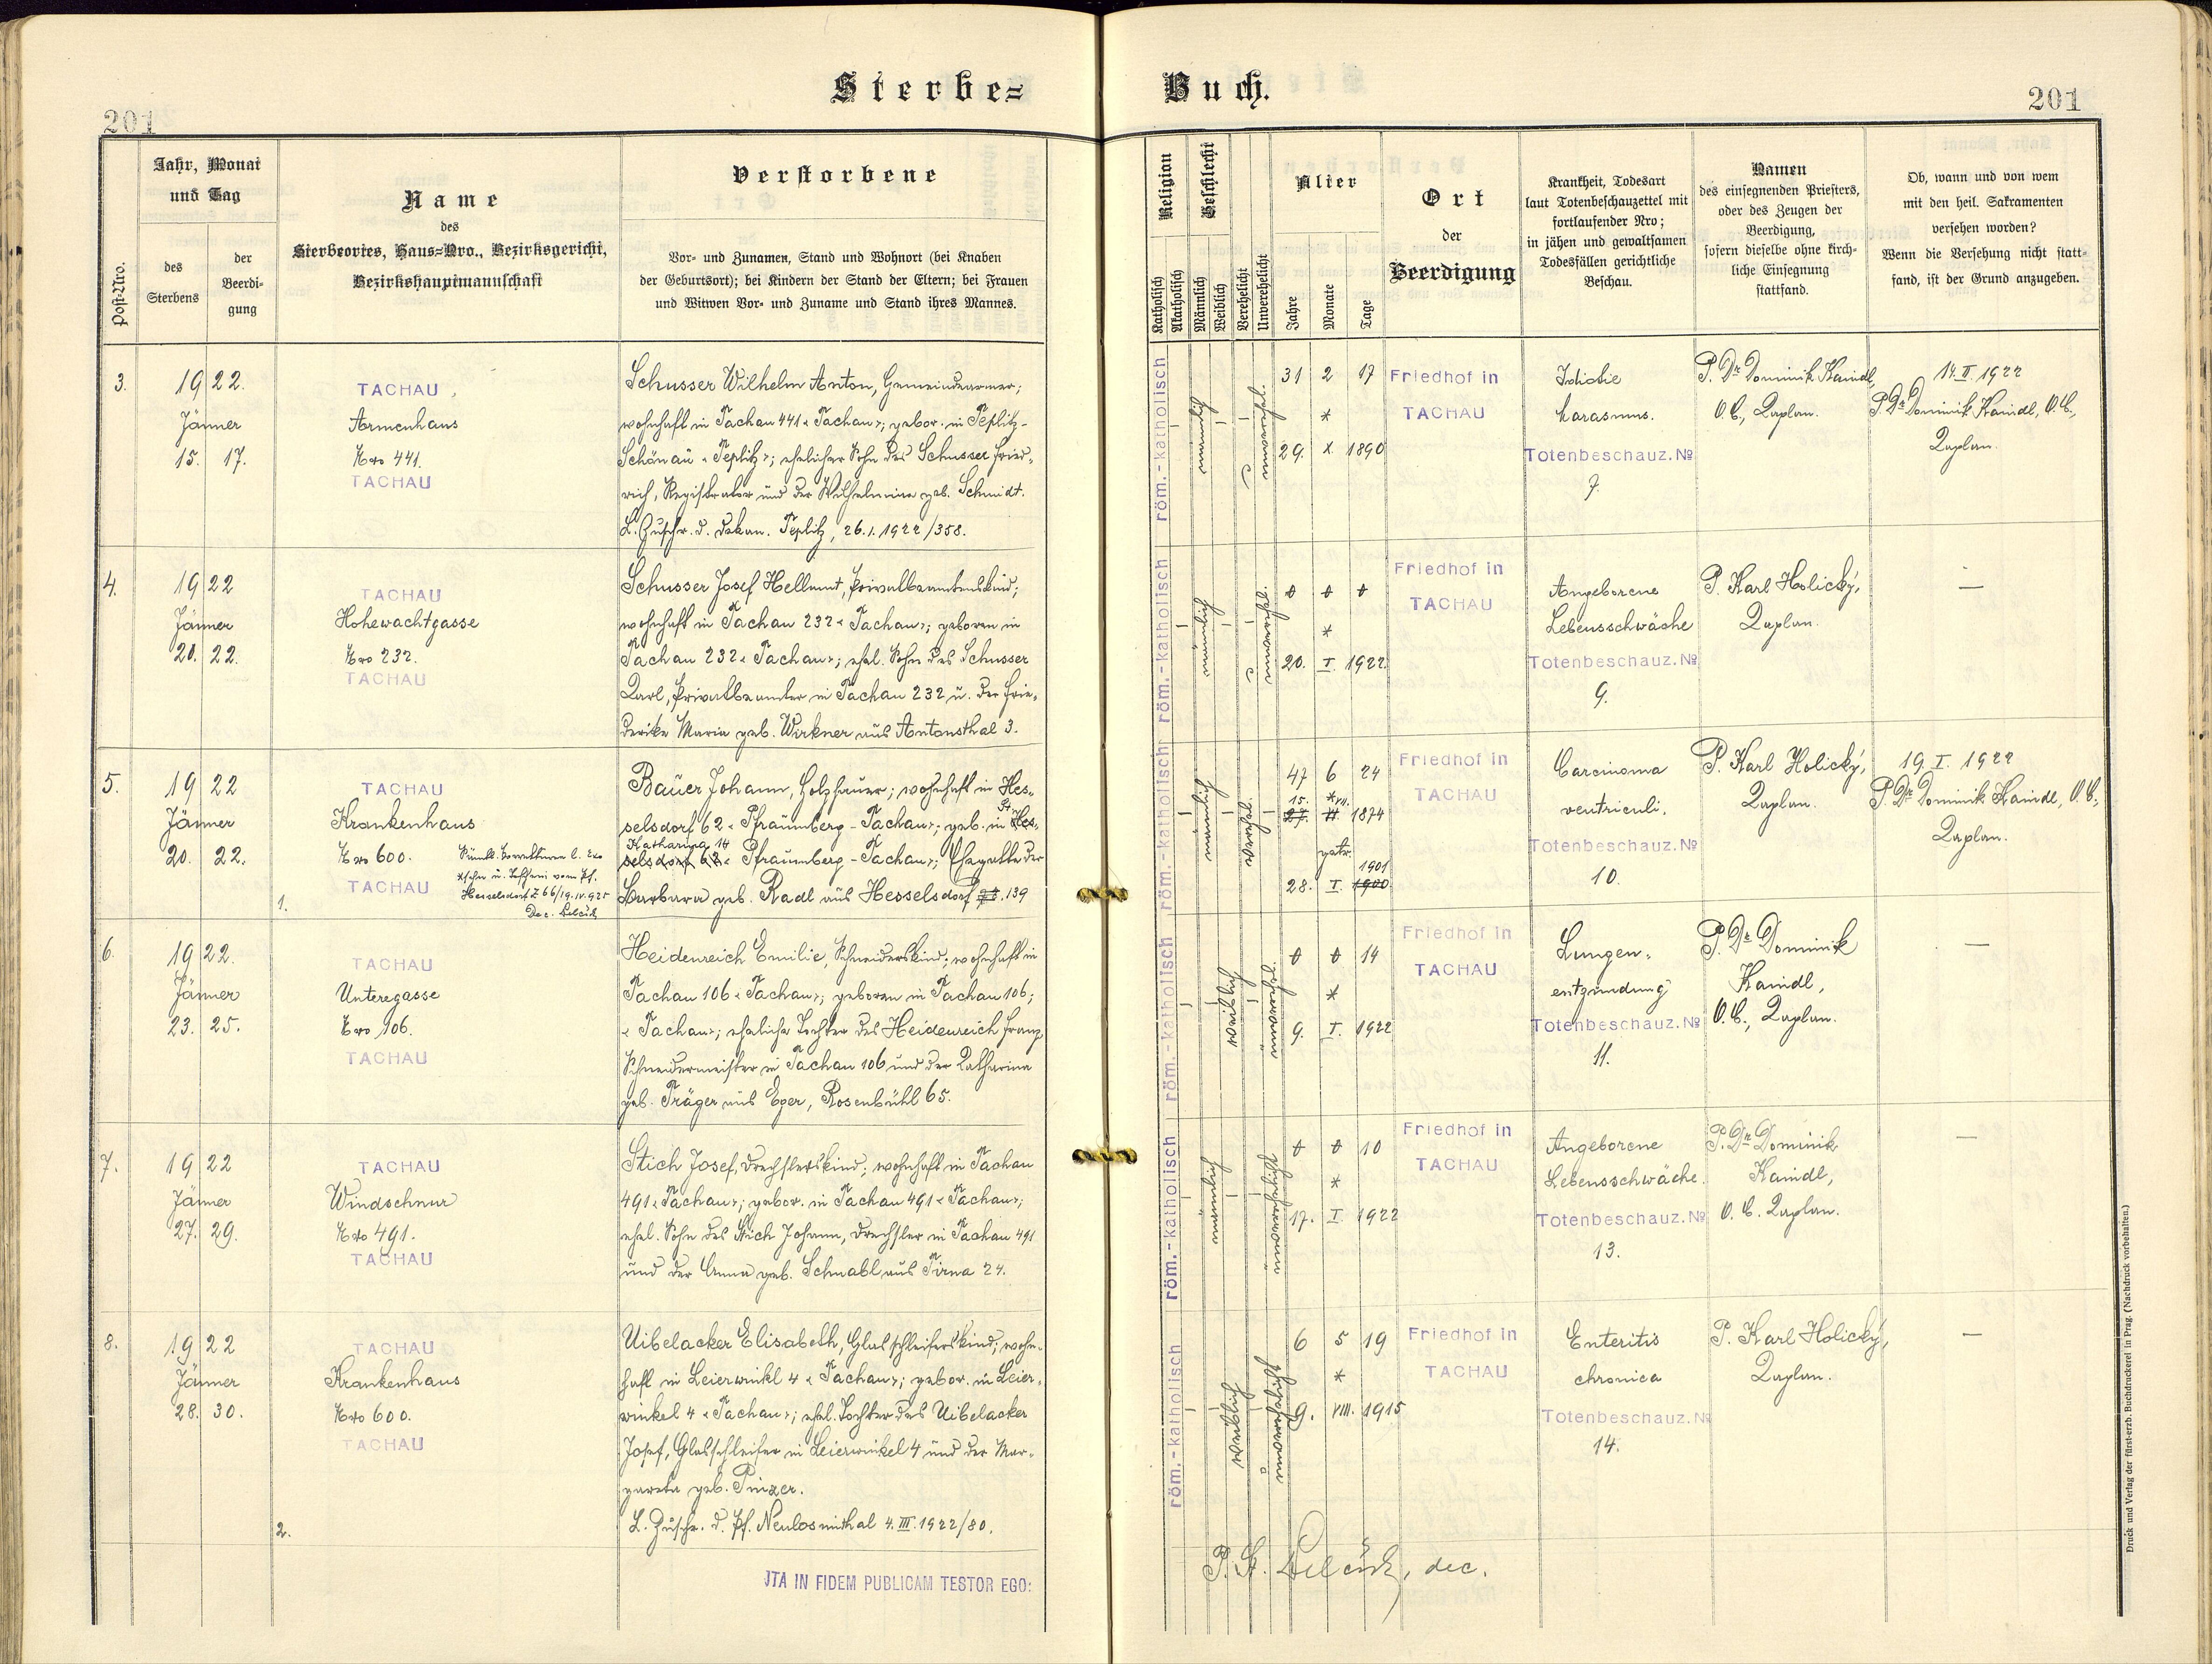 Sterbe=
Buch.
201
201
Post-Nro.
Jahr, Monat
und Tag
des
Sterbens
der
Beerdi-
gung
Name
des
Sterbeortes, Haus=Nro., Bezirksgericht,
Bezirkshauptmannschaft
Verstorbene
Vor- und Zunamen, Stand und Wohnort (bei Knaben
der Geburtsort); bei Kindern der Stand der Eltern; bei Frauen
und Witwen Vor- und Zuname und Stand ihres Mannes.
Religion
Katholisch
Akatholisch
Geschlecht
Männlich
Weiblich
Verehelicht
Unverehelicht
Alter
Jahre
Monate
Tage
Ort
der
Beerdigung
Krankheit, Todesart
laut Totenbeschauzettel mit
fortlaufender Nro;
in jähen und gewaltsamen
Todesfällen gerichtliche
Beschau.
Namen
des einsegnenden Priesters,
oder des Zeugen der
Beerdigung,
sofern dieselbe ohne kirch-
liche Einsegnung
stattfand.
Ob, wann und von wem
mit den heil. Sakramenten
versehen worden?
Wenn die Versehung nicht statt-
fand, ist der Grund anzugeben.
3.
1922.
Jänner
15. 17.
TACHAU
Armenhaus
Nro 441.
TACHAU
Schusser Wilhelm Anton, Gemeindearmer;
wohnhaft in Tachau 441 "Tachau"; gebor. in Teplitz-
Schönau "Teplitz"; ehelicher Sohn des Schusser Fried-
rich, Registrator und der Wilhelmine geb. Schmidt.
L. Zuschr. d. Dekan. Teplitz, 26.1.1922/358.
röm.-katholisch
männlich
31 2 17
*
29. X. 1890
Friedhof in
TACHAU
Idiotie
Marasmus.
Totenbeschauz. No
7.
P. Dr. Dominik Kaindl,
O.C., Kaplan.
P. Dr. Dominik Kaindl, O.C.,
Kaplan.
4.
1922
Jänner
20. 22.
TACHAU
Hohewachtgasse
Nro 232.
TACHAU
Schusser Josef Hellmut, Privatbeamtenskind;
wohnhaft in Tachau 232 "Tachau"; geboren in
Tachau 232 "Tachau"; ehel. Sohn des Schusser
Karl, Privatbeamter in Tachau 232 u. der Frie-
derike Maria geb. Wirkner aus Antonsthal 3.
röm.-katholisch
männlich
0 0 0
*
20. I. 1922
Friedhof in
TACHAU
Angeborene
Lebensschwäche
Totenbeschauz. No
9.
P. Karl Holický,
Kaplan.
—
5.
1922
Jänner
20. 22.
TACHAU
Krankenhaus
Nro 600.
TACHAU
Hesselsdorf Z 66/19.IV.925
1.
Bauer Johann, Holzhauer; wohnhaft in Hes-
selsdorf 62 "Pfraumberg-Tachau"; geb. in St. Hes-
Katharina 14
selsdorf 62 "Pfraumberg-Tachau"; Ehegatte der
Barbara geb. Radl aus Hesselsdorf 139
röm.-katholisch
männlich
47 6 24
15. * VII.
27. 1874
getr.
1901
28. I. 1900
Friedhof in
TACHAU
Carcinoma
ventriculi.
Totenbeschauz. No
10.
P. Karl Holický,
Kaplan.
19. I. 1922
P. Dr. Dominik Kaindl, O.C.,
Kaplan.
6.
1922.
Jänner
23. 25.
TACHAU
Unteregasse
Nro 106.
TACHAU
Heidenreich Emilie, Schneiderskind; wohnhaft in
Tachau 106 "Tachau"; geboren in Tachau 106;
"Tachau"; eheliche Tochter des Heidenreich Franz
Schneidermeister in Tachau 106 und der Katharina
geb. Träger aus Eger, Rosenbühl 65.
röm.-katholisch
weiblich
0 0 14
*
9. I. 1922
Friedhof in
TACHAU
Lungen-
entzündung
Totenbeschauz. No
11.
P. Dr. Dominik
Kaindl,
O.C., Kaplan.
—
7.
1922
Jänner
27. 29.
TACHAU
Windschnur
Nro 491.
TACHAU
Stich Josef, Drechslerskind; wohnhaft in Tachau
491 "Tachau"; gebor. in Tachau 491 "Tachau";
ehel. Sohn des Stich Johann, Drechsler in Tachau 491
und der Anna geb. Schnabl aus Tirna 24.
röm.-katholisch
männlich
0 0 10
*
17. I. 1922
Friedhof in
TACHAU
Angeborene
Lebensschwäche.
Totenbeschauz. No
13.
P. Dr. Dominik
Kaindl,
O.C. Kaplan.
—
8.
1922
Jänner
28. 30.
TACHAU
Krankenhaus
Nro 600.
TACHAU
2.
Uibelacker Elisabeth, Glasschleiferskind; wohn-
haft in Leierwinkl 4 "Tachau"; gebor. in Leier-
winkel 4 "Tachau"; ehel. Tochter des Uibelacker
Josef, Glasschleifer in Leierwinkel 4 und der Mar-
gareta geb. Pinzer.
L. Zuschr. d. Pf. Neulosimthal 4.III.1922/80.
röm.-katholisch
weiblich
6 5 19
*
9. VIII. 1915
Friedhof in
TACHAU
Enteritis
chronica
Totenbeschauz. No
14.
P. Karl Holický,
Kaplan.
—
JTA IN FIDEM PUBLICAM TESTOR EGO:
dec.
Druck und Verlag der fürst-erzb. Buchdruckerei in Prag. (Nachdruck vorbehalten.)